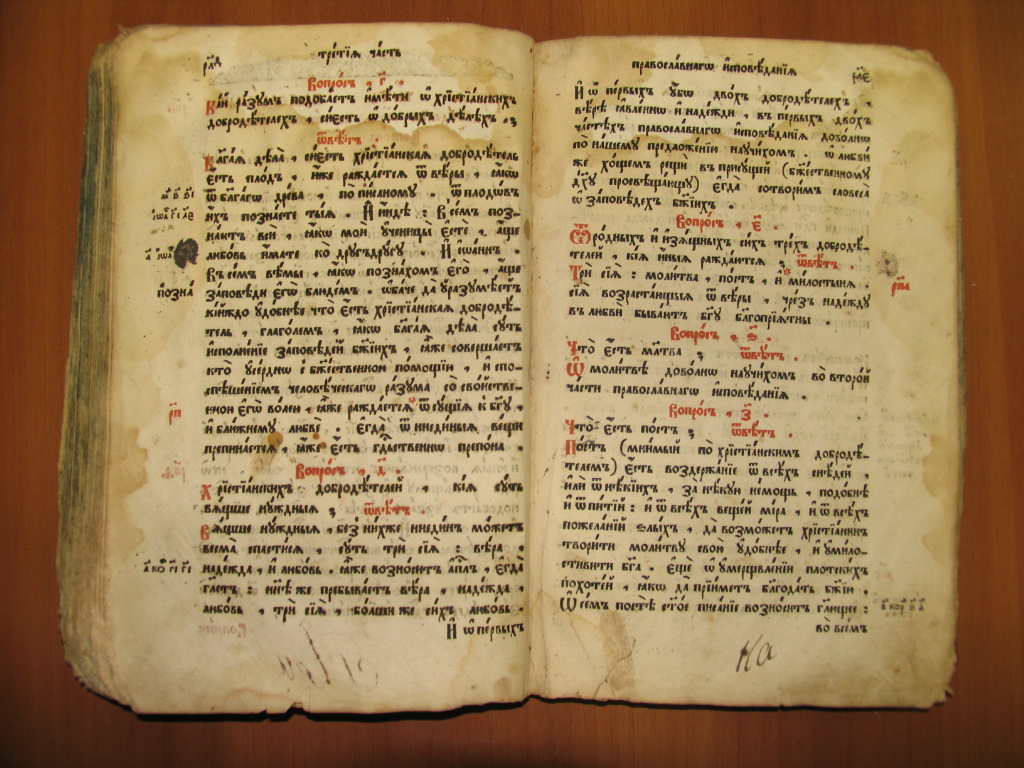 рмд
третїѧ часть
Вопро́съ, г҃.
Кі́й ра́зумъ подоба́етъ имѣ́ти ѡ҆ хрїстїа́нскихъ
добродѣ́телехъ, си́есть ѡ҆ до́брыхъ дѣ́лѣхъ;
Ѿвѣ́тъ.
Благая дѣла̀, си́есть хрїстїа́нская добродѣ́тель
є҆́сть пло́дъ, и҆́же ражда́етсѧ ѿ вѣ́ры, ꙗ҆́кѡ
ѿ блага́гѡ дре́ва, по пи́саному. ѿ плодѡ́въ
и҆́хъ позна́ете ты́ѧ. И҆ и҆ндѣ̀: Ѡ се́мъ поз-
на́ютъ всѝ, ꙗ҆́кѡ мои̑ ᲂу҆ченицы̀ є҆стѐ, а҆́ще
любо́вь и҆́мате ко дру́гъдру́гу. И҆ і҆ѡа́ннъ.
Ѡ се́мъ вѣ́мы, ꙗ҆́кѡ позна́хомъ є҆го̀, а҆́ще
за́повѣди є҆гѡ̀ блюде́мъ. ѻ҆ба́че да ᲂу҆разумѣ́етъ
кі́йждо ᲂу҆до́бнѣе что̀ є҆́сть хрїстїа́нская добродѣ́-
тель, глаго́лемъ, ꙗ҆́кѡ блага́я дѣла̀ су́ть
и҆сполне́нїе за́повѣдей бж҃їихъ, ꙗ҆̀же соверша́етъ
кто̀ ᲂу҆се́рднѡ с̾ бж҃е́ственною по́мощїю, и҆ спо-
спѣше́нїемъ человѣ́ческагѡ ра́зума со сво́йстве-
нною є҆гѡ̀ во́лею, ꙗ҆̀же ражда́етсѧ ѿ су́щїѧ к̾ бг҃у,
и҆ бли́жнему любвѐ. Є҆гда̀ ѿ ни є҆ди́ныѧ ве́щи
препина́етсѧ, ꙗ҆́же є҆́сть гдⷭ҇твеннѡ препо́на.
Вопро́съ, д҃.
Хрїстїа́нскихъ добродѣ́телей, кі́ѧ су́ть
вѧ́щше ну́ждныѧ; Ѿвѣ́тъ.
Вѧ́щше ну́ждныѧ, без̾ ни́хже ни є҆ди́нъ мо́жетъ
весма̀ спасти́сѧ, су́ть трѝ сїѧ̑: вѣ́ра,
наде́жда, и҆ любо́вь. ꙗ҆̀же возно́ситъ а҆пⷭ҇лъ, є҆гда̀
гл҃етъ: нн҃ѣ же пребыва́етъ вѣ́ра, наде́жда,
любо́вь, трѝ сїѧ̑: бо́лши же си́хъ любо́вь.
И҆ ѡ҆ пе́рвыхъ
позна̀
рп҃
правосла́внагѡ и҆сповѣ́данїѧ
рмє
И҆ ѡ҆ пе́рвыхъ ᲂу҆́бѡ дво́хъ добродѣ́телехъ,
вѣ́рѣ ꙗ҆вле́ннѡ и҆ наде́жди, въ пе́рвыхъ дво́хъ
ча́стехъ правосла́внагѡ и҆сповѣ́данїѧ дово́лнѡ
по на́шему предложе́нїи наꙋчи́хомъ. ѡ҆ любви́
же хо́щемъ рещѝ въ прису́щей (бж҃е́ственному
дх҃у просвѣща́ющу) є҆гда̀ сотвори́мъ словеса̀
ѡ҆ за́повѣдехъ бж҃їихъ.
Вопро́съ, є҃.
Ѿ ро́дныхъ и҆ и҆зѧ́щныхъ си́хъ тре́хъ добродѣ́-
телей, кі́ѧ и҆ны́ѧ ражда́ютсѧ; Ѿвѣ́тъ.
Трѝ сїѧ̑: моли́тва, по́стъ, и҆ ми́лостыня.
сїѧ̑ возраста́ющыѧ ѿ вѣ́ры, чрез̾ наде́жду
въ любвѝ быва́ютъ бг҃у бл҃гопрїѧ́тны.
рпа
Вопро́съ, ѕ҃.
Что̀ є҆́сть мл҃тва; Ѿвѣ́тъ.
Ѡ҆ моли́твѣ дово́лнѡ наꙋчи́хомъ во второ́й
ча́сти правосла́внагѡ и҆сповѣ́данїѧ.
Вопро́съ, з҃.
Что̀ є҆́сть по́стъ; Ѿвѣ́тъ.
По́стъ (мни́мый по хрїстїа́нскимъ добродѣ́-
телемъ) є҆́сть воздержа́нїе ѿ всѣ́хъ снѣ́дей,
и҆лѝ ѿ нѣ́кїихъ, за нѣ́кую не́мощь, подо́бнѣ
и҆ ѿ питїй: и҆ ѿ всѣ́хъ веще́й мі́ра, и҆ ѿ всѣ́хъ
пожела́нїй ѕлы́хъ, да возмо́жетъ хрїстїани́нъ
твори́ти моли́тву свою̀ ᲂу҆до́бнѣе, и҆ ᲂу҆ми́ло-
стивити бг҃а. Е҆щѐ ѡ҆ ᲂу҆мерщвле́нїи пло́тскихъ
по́хотей, ꙗ҆́кѡ да прїи́метъ благода́ть бж҃їю.
Ѡ҆ се́мъ по́стѣ ст҃о́е писа́нїе возно́ситъ гл҃ющее:
во все́мъ
Ка